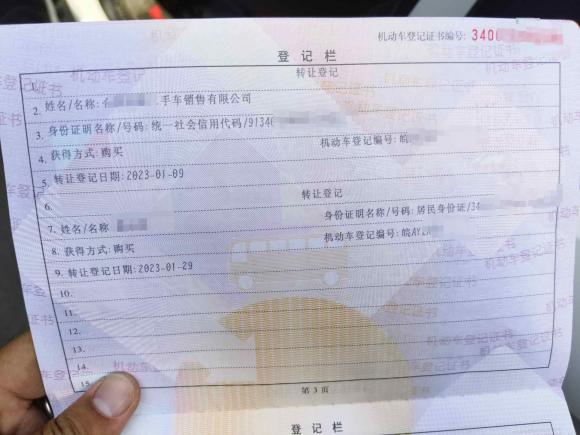 机动车登记证书编号: 3400
登记栏
1.
转让登记
2. 姓名/名称: 手车销售有限公司
3. 身份证明名称/号码: 统一社会信用代码/91340
4. 获得方式: 购买 机动车登记编号: 皖
5. 转让登记日期: 2023-01-09
6. 转让登记
7. 姓名/名称 身份证明名称/号码: 居民身份证/34
8. 获得方式: 购买 机动车登记编号: 皖AY
9. 转让登记日期: 2023-01-29
10.
11.
12.
13.
14.
15
第 3 页
登记栏